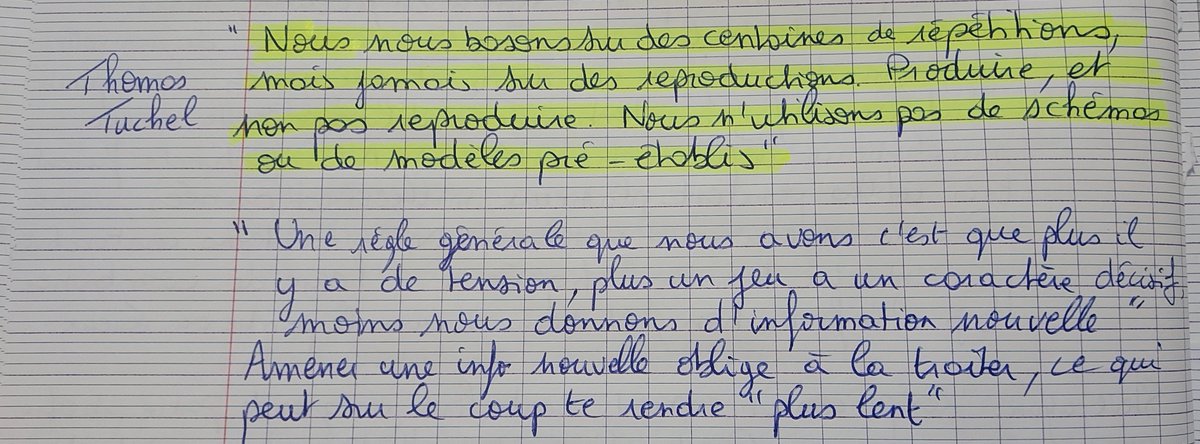 " Nous nous basons sur des centaines de répétitions,
Thomas
Tuchel
mais jamais sur des reproductions. Produire, et
non pas reproduire. Nous n'utilisons pas de schémas
ou de modèles pré-établis"
" Une règle générale que nous avons c'est que plus il
y a de tension, plus un jeu a un caractère décisif,
moins nous donnons d'information nouvelle "
Amener une info nouvelle oblige à la traiter, ce qui
peut sur le coup te rendre "plus lent"